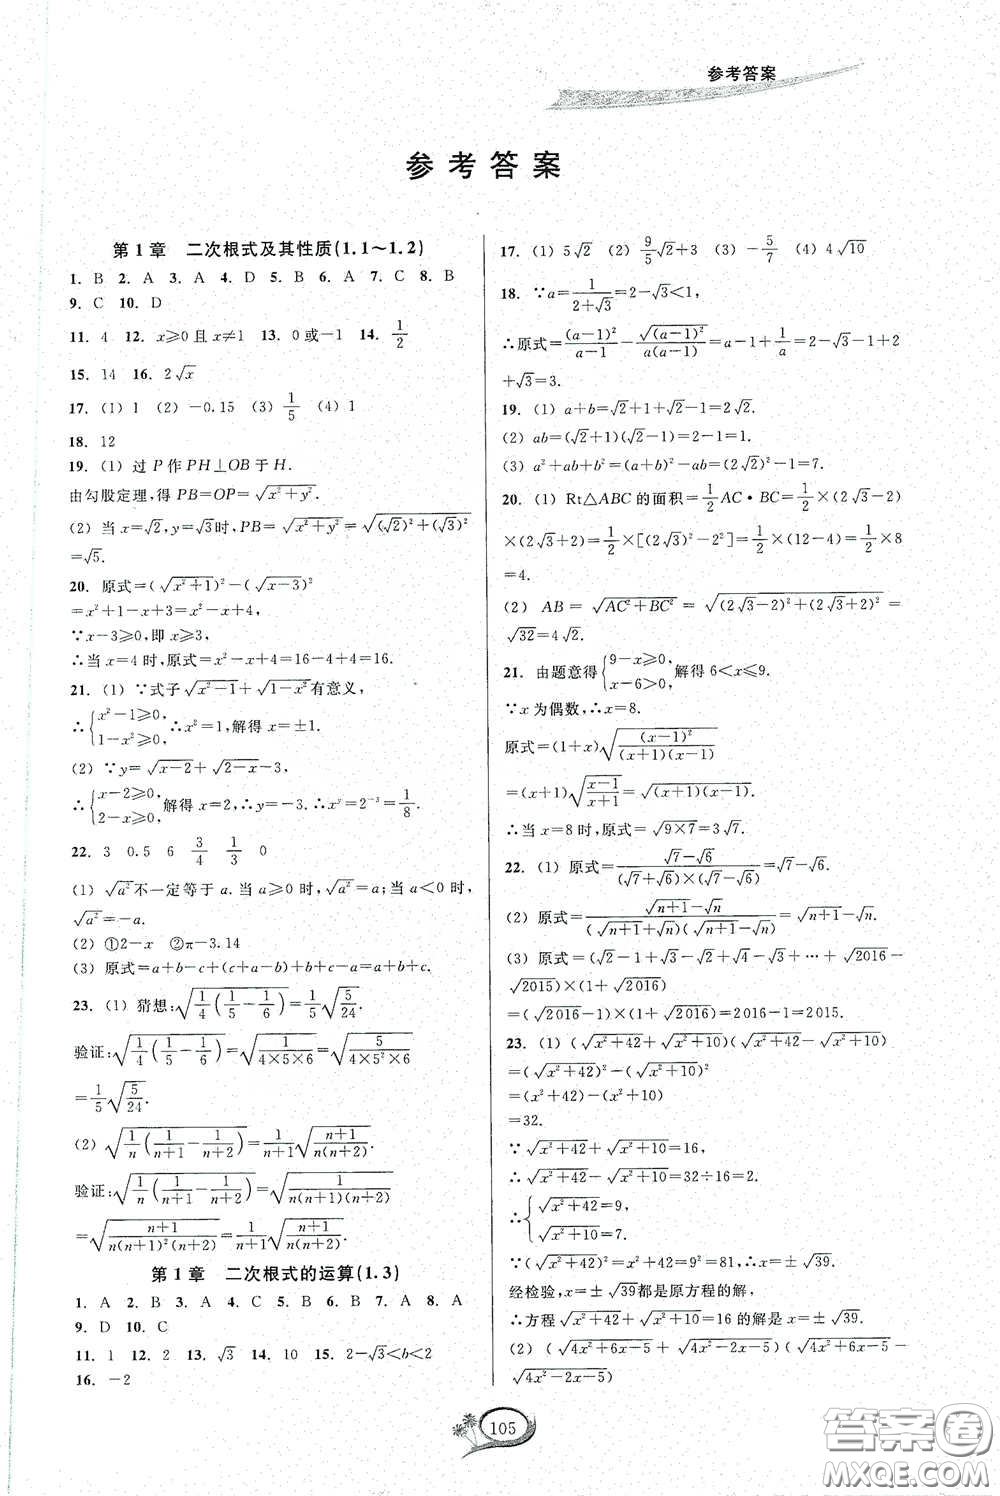 参考答案
参考答案
第1章 二次根式及其性质(1.1～1.2)
1. B 2. A 3. A 4. D 5. B 6. A 7. C 8. B
9. C 10. D
11. 4 12. x≥0且x≠1 13. 0或-1 14. 1/2
15. 14 16. 2√x
17. (1) 1 (2) -0.15 (3) 1/5 (4) 1
18. 12
19. (1) 过P作PH⊥OB于H.
由勾股定理,得PB=OP=√(x²+y²).
(2) 当x=√2,y=√3时,PB=√(x²+y²)=√((√2)²+(√3)²)
=√5.
20. 原式=(√(x²+1))²-(√(x-3))²
=x²+1-x+3=x²-x+4,
∵x-3≥0,即x≥3,
∴当x=4时,原式=x²-x+4=16-4+4=16.
21. (1) ∵式子√(x²-1)+√(1-x²)有意义,
∴{x²-1≥0, 1-x²≥0, ∴x²=1,解得x=±1.
(2) ∵y=√(x-2)+√(2-x)-3,
∴{x-2≥0, 2-x≥0, 解得x=2,∴y=-3.∴x^y=2⁻³=1/8.
22. 3 0.5 6 3/4 1/3 0
(1) √a²不一定等于a.当a≥0时,√a²=a;当a<0时,
√a²=-a.
(2) ①2-x ②π-3.14
(3) 原式=a+b-c+(c+a-b)+b+c-a=a+b+c.
23. (1) 猜想:√(1/4(1/5-1/6))=1/5√(5/24).
验证:√(1/4(1/5-1/6))=√(1/(4×5×6))=√(5/(4×5²×6))
=1/5√(5/24).
(2) √(1/n(1/(n+1)-1/(n+2)))=1/(n+1)√((n+1)/(n(n+2))).
验证:√(1/n(1/(n+1)-1/(n+2)))=√(1/(n(n+1)(n+2)))
=√((n+1)/(n(n+1)²(n+2)))=1/(n+1)√((n+1)/(n(n+2))).
第1章 二次根式的运算(1.3)
1. A 2. B 3. A 4. C 5. B 6. B 7. A 8. A
9. D 10. C
11. 1 12. 2 13. √3 14. 10 15. 2-√3<b<2
16. -2
17. (1) 5√2 (2) 9/5√2+3 (3) -5/7 (4) 4√10
18. ∵a=1/(2+√3)=2-√3<1,
∴原式=(a-1)²/(a-1)-√((a-1)²)/(a(a-1))=a-1+1/a=2-√3-1+2
+√3=3.
19. (1) a+b=√2+1+√2-1=2√2.
(2) ab=(√2+1)(√2-1)=2-1=1.
(3) a²+ab+b²=(a+b)²-ab=(2√2)²-1=7.
20. (1) Rt△ABC的面积=1/2AC·BC=1/2×(2√3-2)
×(2√3+2)=1/2×[(2√3)²-2²]=1/2×(12-4)=1/2×8
=4.
(2) AB=√(AC²+BC²)=√((2√3-2)²+(2√3+2)²)=
√32=4√2.
21. 由题意得{9-x≥0, x-6>0, 解得6<x≤9.
∵x为偶数,∴x=8.
原式=(1+x)√((x-1)²/((x+1)(x-1)))
=(x+1)√((x-1)/(x+1))=√((x+1)(x-1)).
∴当x=8时,原式=√(9×7)=3√7.
22. (1) 原式=(√7-√6)/((√7+√6)×(√7-√6))=√7-√6.
(2) 原式=(√(n+1)-√n)/((√(n+1)+√n)(√(n+1)-√n))=√(n+1)-√n.
(3) 原式=(√2-1+√3-√2+√4-√3+…+√2016-
√2015)×(1+√2016)
=(√2016-1)×(1+√2016)=2016-1=2015.
23. (1) (√(x²+42)+√(x²+10))(√(x²+42)-√(x²+10))
=(√(x²+42))²-(√(x²+10))²
=(x²+42)-(x²+10)
=32.
∵√(x²+42)+√(x²+10)=16,
∴√(x²+42)-√(x²+10)=32÷16=2.
∴{√(x²+42)=9, √(x²+10)=7.
∵√(x²+42)=9²=81,∴x=±√39.
经检验,x=±√39都是原方程的解.
∴方程√(x²+42)+√(x²+10)=16的解是x=±√39.
(2) (√(4x²+6x-5)+√(4x²-2x-5))(√(4x²+6x-5)-
√(4x²-2x-5))
105
答案卷
MXQE.COM